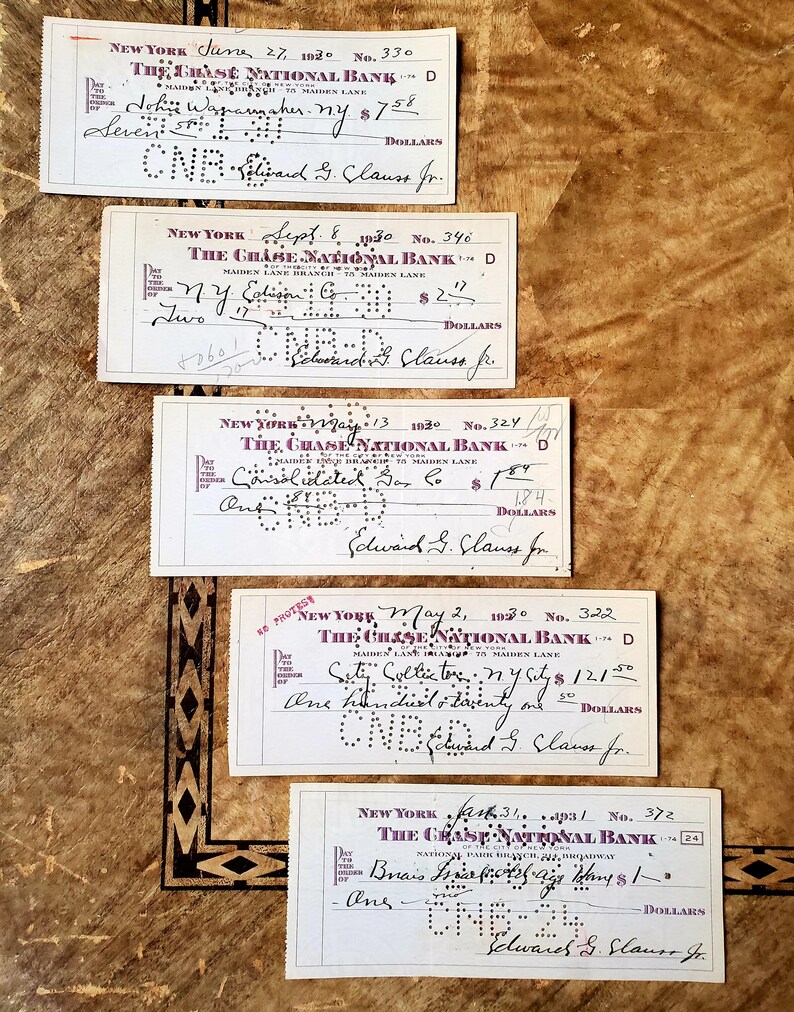 NEW YORK June 27, 1930 No. 330
THE CHASE NATIONAL BANK 1-74 D
OF THE CITY OF NEW YORK
MAIDEN LANE BRANCH - 75 MAIDEN LANE
PAY TO THE ORDER OF John Wanamaker. N.Y. $ 7 58
Seven 58 DOLLARS
CNB-D Edward G. Clauss Jr.
NEW YORK Sept. 8 1930 No. 340
THE CHASE NATIONAL BANK 1-74 D
OF THE CITY OF NEW YORK
MAIDEN LANE BRANCH - 75 MAIDEN LANE
PAY TO THE ORDER OF N Y Edison Co. $ 2 17
Two 17 DOLLARS
CNB-D Edward G. Clauss Jr.
NEW YORK May 13 1930 No. 324
THE CHASE NATIONAL BANK 1-74 D
OF THE CITY OF NEW YORK
MAIDEN LANE BRANCH - 75 MAIDEN LANE
PAY TO THE ORDER OF Consolidated Gas Co $ 1 84
1.84
One 84 DOLLARS
CNB-D
Edward G. Clauss Jr.
NO PROTEST
NEW YORK May 2, 1930 No. 322
THE CHASE NATIONAL BANK 1-74 D
OF THE CITY OF NEW YORK
MAIDEN LANE BRANCH - 75 MAIDEN LANE
PAY TO THE ORDER OF City Collector N Y City $ 121 50
One hundred & twenty one 50 DOLLARS
CNB-D Edward G. Clauss Jr.
NEW YORK Jan. 31, 1931 No. 372
THE CHASE NATIONAL BANK 1-74 24
OF THE CITY OF NEW YORK
NATIONAL PARK BRANCH, 214 BROADWAY
PAY TO THE ORDER OF Bnais Israel Age Home $ 1
One DOLLARS
CNB-24
Edward G. Clauss Jr.